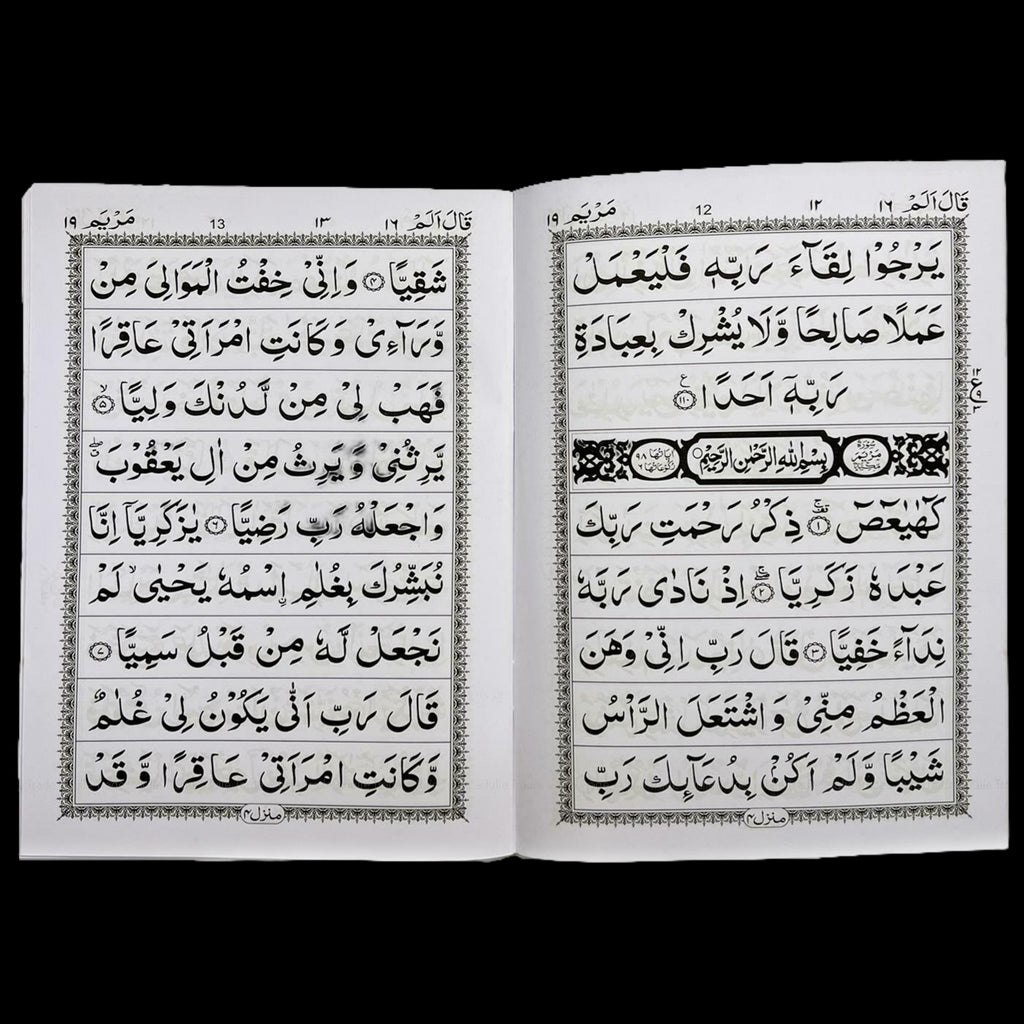 قَالَ اَلَمْ ١٦ ١٢ 12 مَرْيَم ١٩
يَرْجُوْا لِقَآءَ رَبِّهٖ فَلْيَعْمَلْ
عَمَلًا صَالِحًا وَّلَا يُشْرِكْ بِعِبَادَةِ
رَبِّهٖۤ اَحَدًا ١١٠
سُوْرَةُ مَرْيَمَ مَكِّيَّةٌ بِسْمِ اللهِ الرَّحْمٰنِ الرَّحِيْمِ اٰيَاتُهَا ٩٨ رُكُوْعَاتُهَا ٦
كٓهٰيٰعٓصٓ ١ ذِكْرُ رَحْمَتِ رَبِّكَ
عَبْدَهٗ زَكَرِيَّا ٢ اِذْ نَادٰى رَبَّهٗ
نِدَآءً خَفِيًّا ٣ قَالَ رَبِّ اِنِّىْ وَهَنَ
الْعَظْمُ مِنِّىْ وَاشْتَعَلَ الرَّاْسُ
شَيْبًا وَّلَمْ اَكُنْۢ بِدُعَآىِٕكَ رَبِّ
منزل ٤
قَالَ اَلَمْ ١٦ ١٣ 13 مَرْيَم ١٩
شَقِيًّا ٤ وَاِنِّىْ خِفْتُ الْمَوَالِىَ مِنْ
وَّرَآءِىْ وَكَانَتِ امْرَاَتِىْ عَاقِرًا
فَهَبْ لِىْ مِنْ لَّدُنْكَ وَلِيًّا ٥
يَّرِثُنِىْ وَيَرِثُ مِنْ اٰلِ يَعْقُوْبَ
وَاجْعَلْهُ رَبِّ رَضِيًّا ٦ يٰزَكَرِيَّآ اِنَّا
نُبَشِّرُكَ بِغُلٰمِ اِۨسْمُهٗ يَحْيٰى لَمْ
نَجْعَلْ لَّهٗ مِنْ قَبْلُ سَمِيًّا ٧
قَالَ رَبِّ اَنّٰى يَكُوْنُ لِىْ غُلٰمٌ
وَّكَانَتِ امْرَاَتِىْ عَاقِرًا وَّقَدْ
منزل ٤